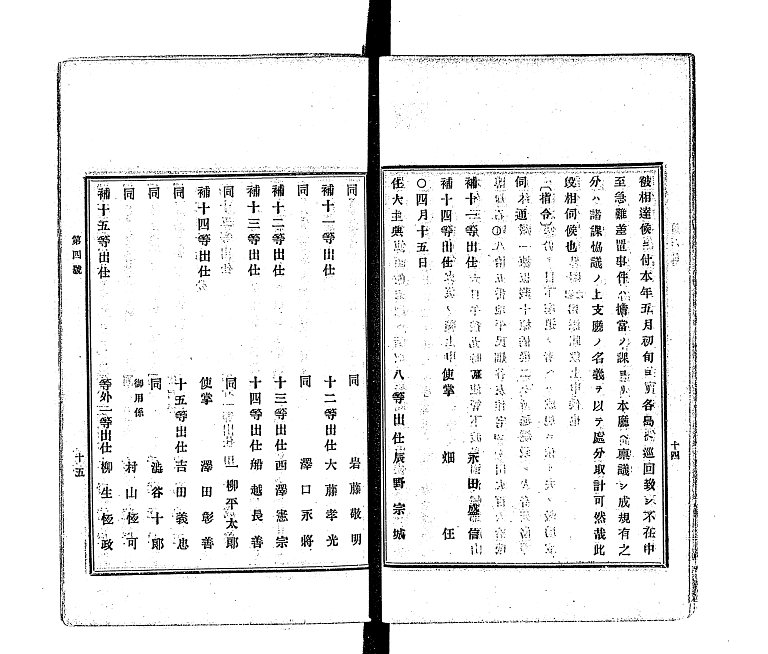 被相達候ニ付本年五月初旬ヨリ各島巡回致シ不在中
至急難差置事件ハ擔當ノ課ヨリ本廳ヘ稟議シ成規有之
分ハ諸課協議ノ上支廳ノ名義ヲ以テ處分取計可然哉此
段相伺候也
〔指令〕
伺ノ通
補十二等出仕 永田盛信
補十四等出仕 使掌 畑任
〇四月十五日
任大主典 八等出仕 辰野宗城
十四
同 同 岩藤敬明
補十一等出仕 十二等出仕 大藤孝光
同 同 澤口永將
補十二等出仕 十三等出仕 西澤憲宗
補十三等出仕 十四等出仕 船越長善
同 同 一柳平太郎
補十四等出仕 使掌 澤田彰善
同 十五等出仕 吉田義忠
同 同 澁谷十郎
同 御用係 村山恆可
補十五等出仕 等外一等出仕 柳生恆政
第四號 十五